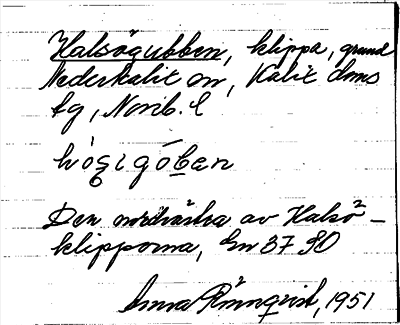 Halsögubben, klippa, grund
Nederkalix sn, Kalix dms
tg, Norrb. l
Den nordvästra av Halsö-
klipporna, En 37 SO
Anna Rönnqvist, 1951